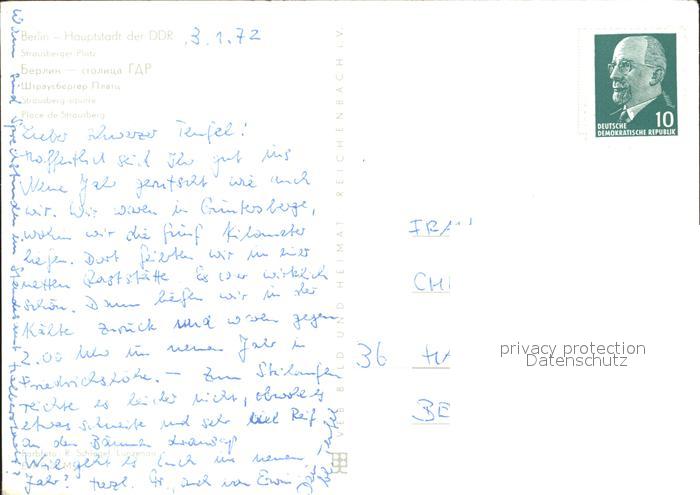 Berlin – Hauptstadt der DDR
3.1.72
Strausberger Platz
Берлин — столица ГДР
Штраусбергер Платц
Strausberg-square
Place de Strausberg
Lieber schwarzer Teufel!
Hoffentlich seid Ihr gut ins
Neue Jahr gerutscht wie auch
wir. Wir waren in Güntersberge,
wohin wir die fünf Kilometer
liefen. Dort feierten wir in einer
netten Raststätte. Es war wirklich
schön. Dann liefen wir in der
Kälte zurück und waren gegen
2.00 Uhr im neuen Jahr in
Friedrichshöhe. — Zum Skilaufen
reichte es leider nicht, obwohl es
etwas schneite und sehr viel Reif
an den Bäumen
Wie geht es Euch im neuen
Jahr? Herzl. Gr., auch von Erwin
Wann sind Sprechstunden im Standesamt Halberstadt?
VEB BILD UND HEIMAT REICHENBACH i. V.
10
DEUTSCHE
DEMOKRATISCHE REPUBLIK
CH
36 HA
BE
privacy protection
Datenschutz